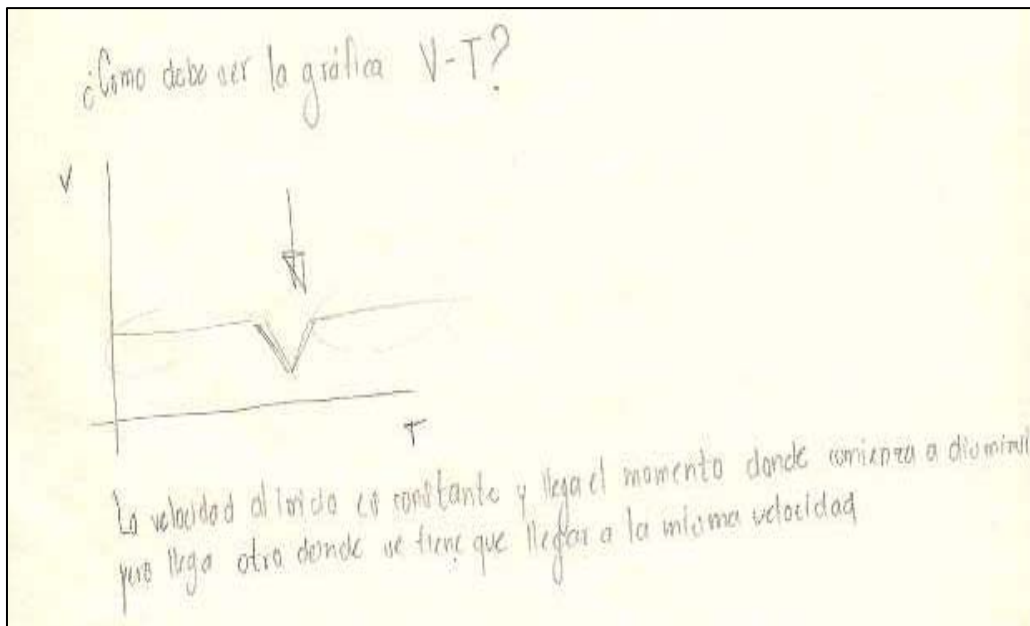 ¿Como debe ser la gráfica V-T?
V
T
La velocidad al inicio es constante y llega el momento donde comienza a disminui
pero llega otro donde se tiene que llegar a la misma velocidad